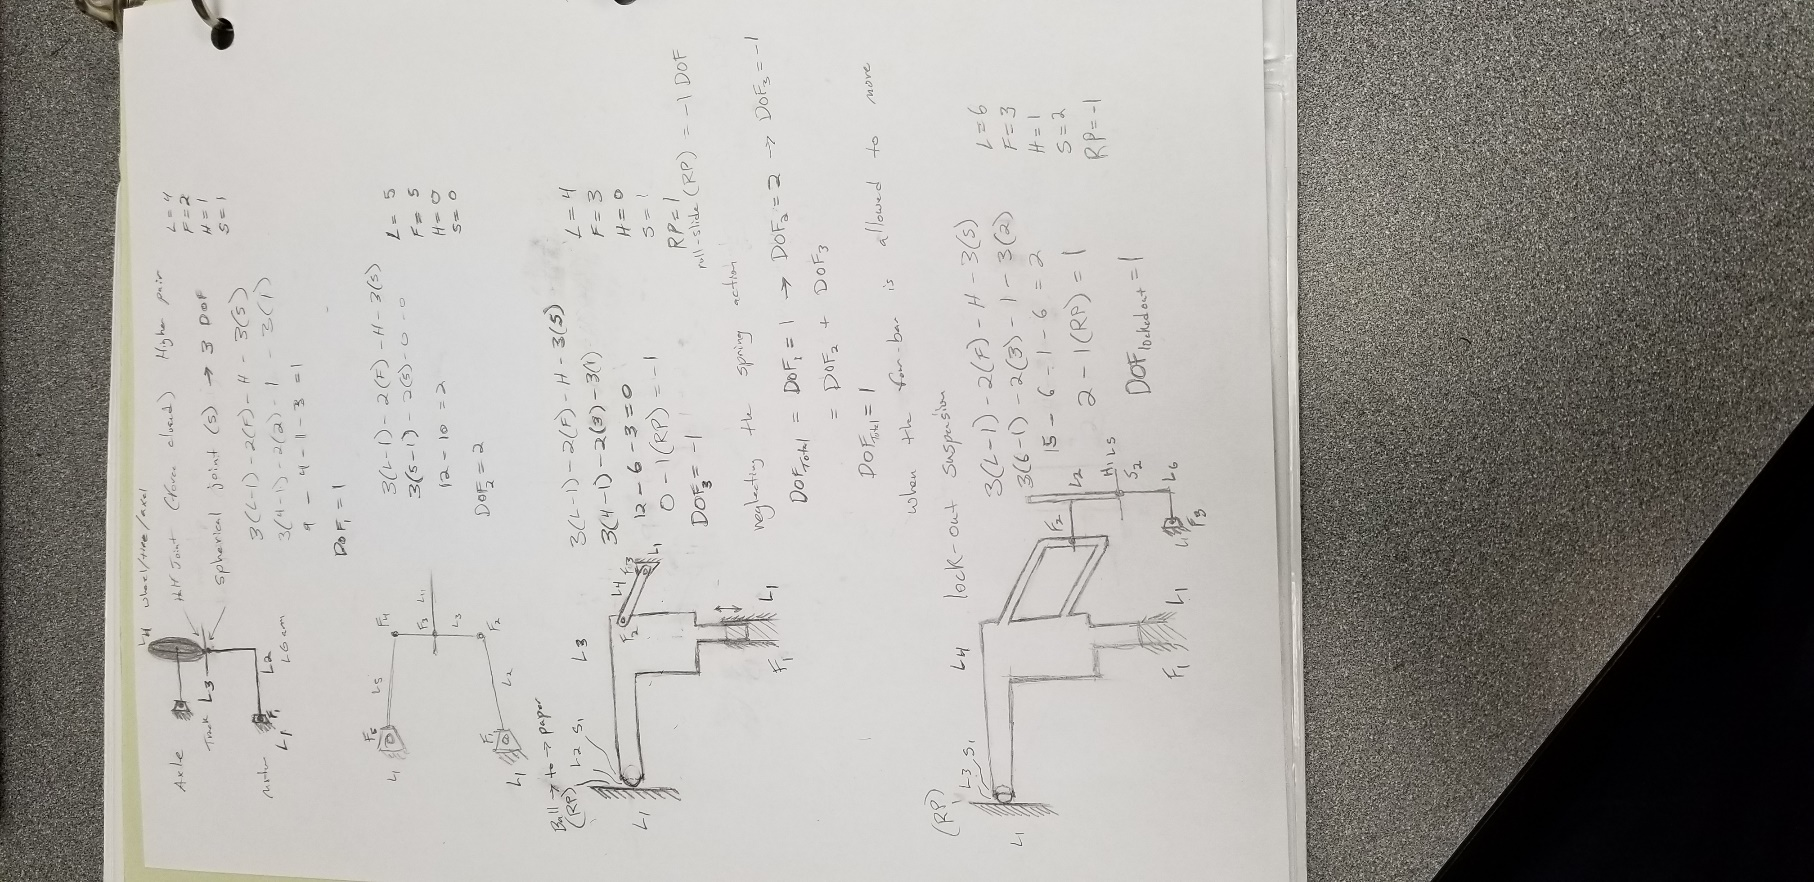 L4 wheel/tire/axel
Half Joint (force closed) Higher pair
Axle
Track L3
spherical joint (s) → 3 DOF
Motor
L1
F1
L2
L = 4
F = 2
H = 1
S = 1
3(L-1) - 2(F) - H - 3(S)
3(4-1) - 2(2) - 1 - 3(1)
9 - 4 - 1 - 3 = 1
DOF₁ = 1
F5
L1
L5
F4
F3
L3
F2
L2
F1
L1
3(L-1) - 2(F) - H - 3(S)
3(5-1) - 2(5) - 0 - 0
12 - 10 = 2
DOF₂ = 2
L = 5
F = 5
H = 0
S = 0
Ball → to → paper
(RP)
L2 S1
L3
L4
F2
F3
L1
L1
F1
L1
3(L-1) - 2(F) - H - 3(S)
3(4-1) - 2(3) - 3(1)
12 - 6 - 3 = 0
0 - 1(RP) = -1
DOF₃ = -1
L = 4
F = 3
H = 0
S = 1
RP = 1
roll-slide (RP) = -1 DOF
neglecting the spring action
DOF Total = DOF₁ = 1 → DOF₂ = 2 → DOF₃ = -1
= DOF₂ + DOF₃
DOF Total = 1
when the four-bar is allowed to move
lock-out suspension
(RP)
L3 S1
L1
L4
F2
L2
H1 L5
S2
L6
L1
F3
F1
L1
3(L-1) - 2(F) - H - 3(S)
3(6-1) - 2(3) - 1 - 3(2)
15 - 6 - 1 - 6 = 2
2 - 1(RP) = 1
DOF locked out = 1
L = 6
F = 3
H = 1
S = 2
RP = -1